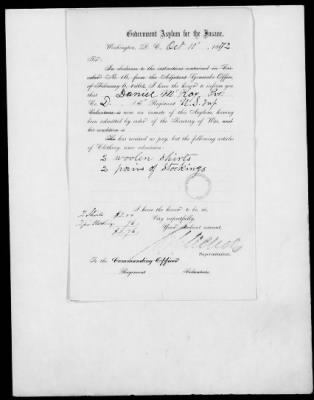 Government Asylum for the Insane.
Washington, D. C., Oct 10, 1872
Sir:
In obedience to the instructions contained in Circular No. 16, from the Adjutant General's Office,
of February 6, 1864, I have the honor to inform you
that Daniel M
Co. D. Regiment U.S. Inf
Volunteers is an inmate of this Asylum, having
been admitted by order of the Secretary of War, and
his condition is
He has received no pay, but the following articles
of Clothing since admission:
2 woolen shirts
2 pairs of stockings
I have the honor to be, sir,
2 Shirts
Very respectfully,
Your obedient servant,
Superintendent.
To the Commanding Officer
Regiment Volunteers.